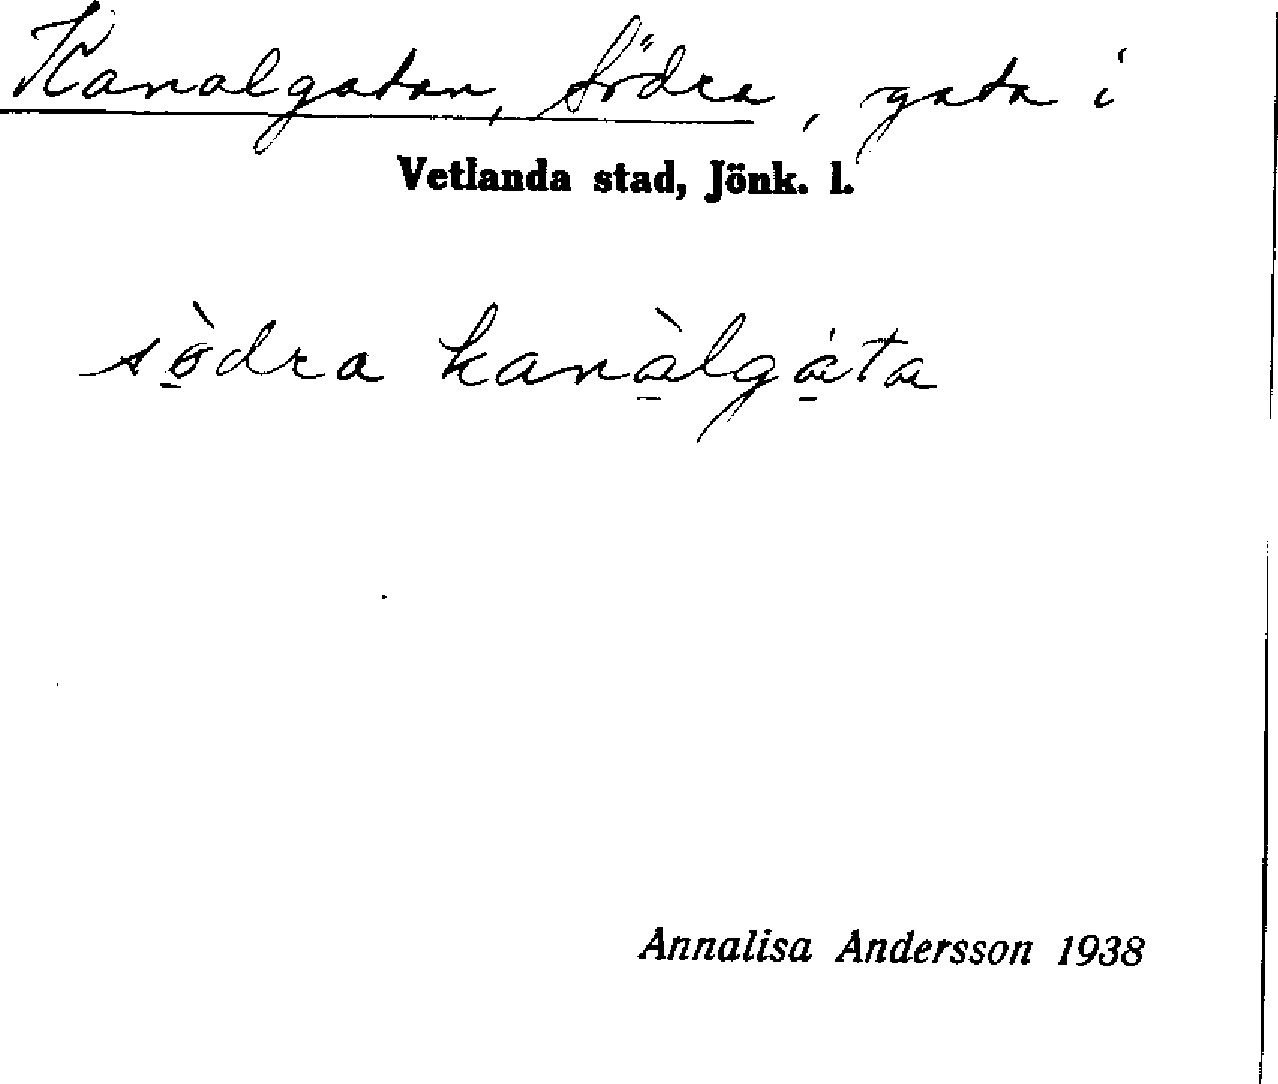 Kanalgatan, Södra, gata i
Vetlanda stad, Jönk. l.
sö̀dra kanàlgáta
Annalisa Andersson 1938